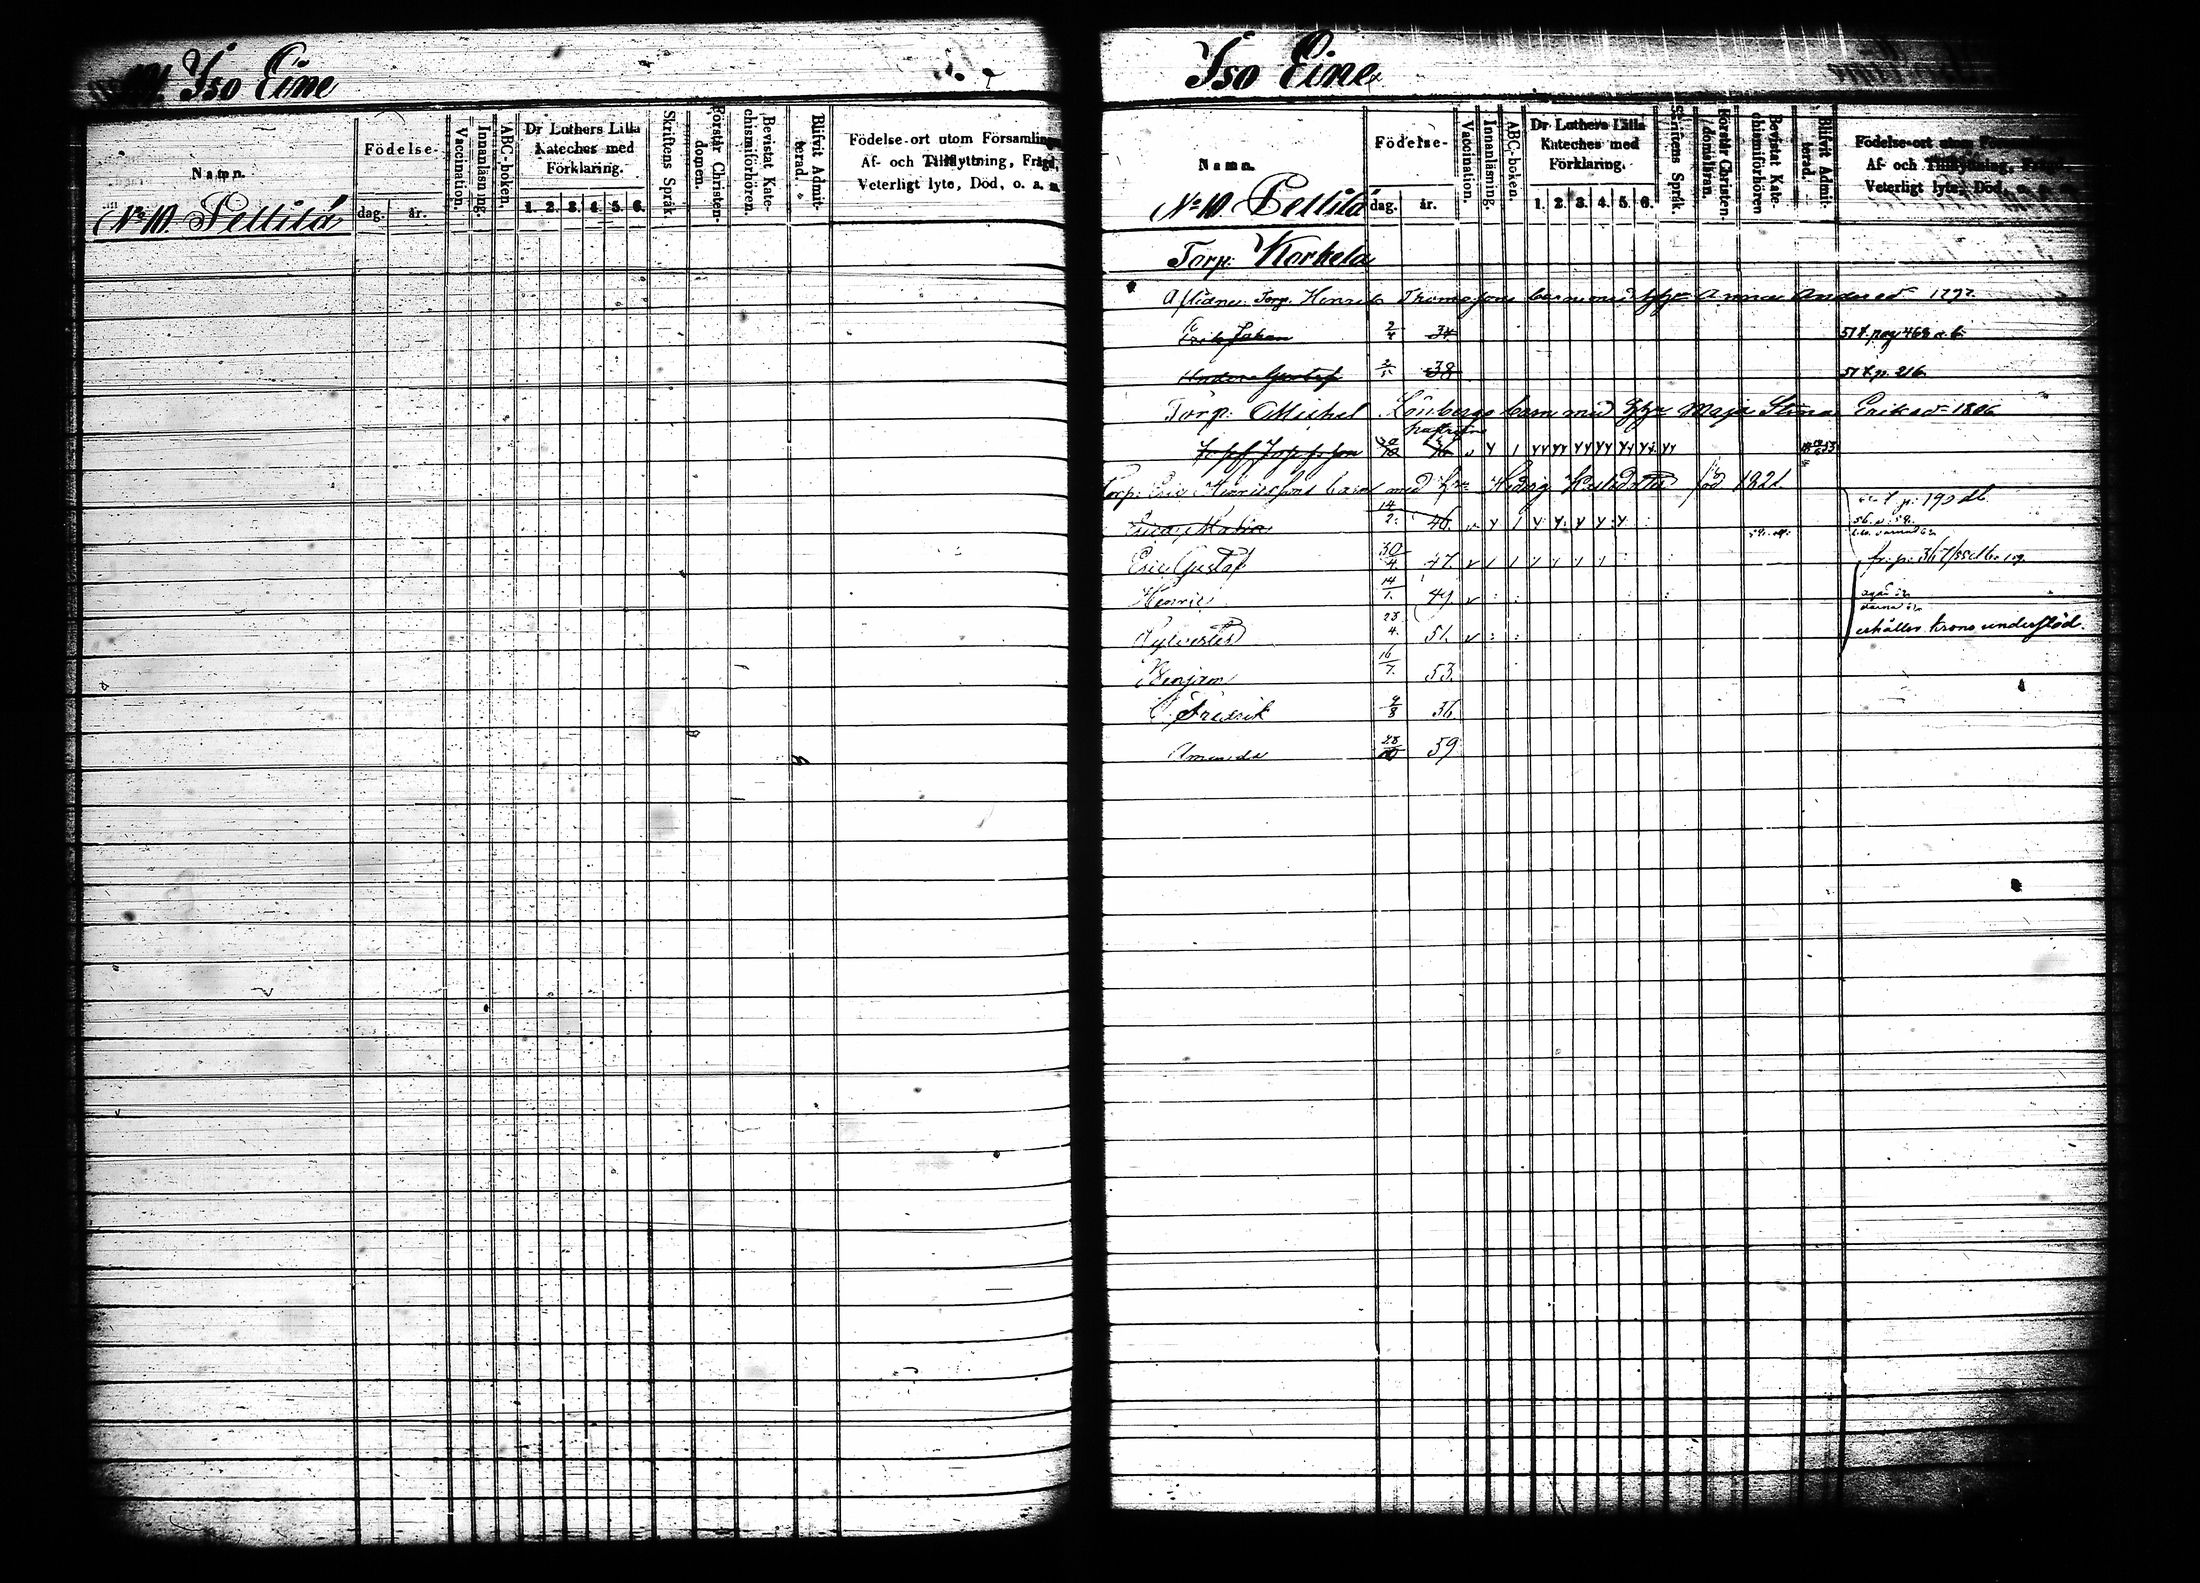 Iso Eine
Namn.
Födelse-
dag. år.
Vaccination.
Innanläsning.
ABC-boken.
Dr Luthers Lilla
Kateches med
Förklaring.
1. 2. 3. 4. 5. 6.
Skriftens Språk.
Förstår Christen-
domen.
Bevistat Kate-
chismiförhören.
Blifvit Admit-
terad.
Födelse-ort utom Församlingen
Af- och Tillflyttning, Frägd,
Veterligt lyte, Död, o. a. m.
No 10. Pellilä
Iso Eine
Namn.
Födelse-
dag. år.
Vaccination.
Innanläsning.
ABC-boken.
Dr Luthers Lilla
Kateches med
Förklaring.
1. 2. 3. 4. 5. 6.
Skriftens Språk.
Förstår Christen-
domsläran.
Bevistat Kate-
chismiförhören
Blifvit Admit-
terad.
Födelse-ort utom
Af- och Tillflyttning, Frägd
Veterligt lyte, Död, o. a. m.
No 10. Pellilä
Torp: Korkela
Aflidne Torp. Henrik Thomassons barn med Anna Andersd 1797.
Erik Johan 2/4 34 51 t. pag 468
Anders Gustaf 2/5 38 51 t. p. 216
Torp: Michel Lönbergs barn med Maja Stina Eriksd 1806
Josef Josefsson
Torp: Eric Henricssons barn med Hedvig född 1821.
Erica Maria 14/2 46 t. p. 190
Eric Gustaf 30/4 47 fr. p. 367
Henric 14/7. 49
Sylvester 23/4. 51. erhåller krono understöd.
Benjam 16/7. 53.
Fredrik 9/8 56
Amanda 28/10 59